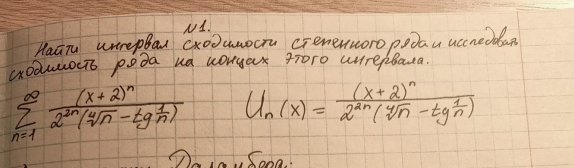 №1.
Найти интервал сходимости степенного ряда и исследовать
сходимость ряда на концах этого интервала.
∞ ∑ n=1 (x+2)^n / 2^{2n}(∜n − tg 1/n)   U_n(x) = (x+2)^n / 2^{2n}(∜n − tg 1/n)
Даламбера: